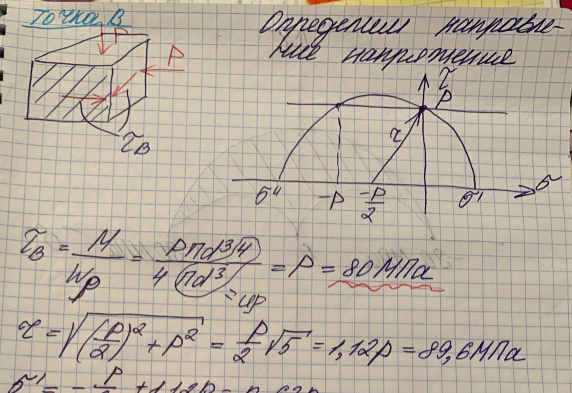 Точка В
Определяем направле-
ние напряжения
P
P
τ_B
τ
P
r
σ"
-P
-P/2
σ'
σ
τ_B = M/Wp = PπD³/4 / 4 πd³ = up = P = 80 МПа
r = √((P/2)² + P²) = P/2 √5 = 1,12P = 89,6 МПа